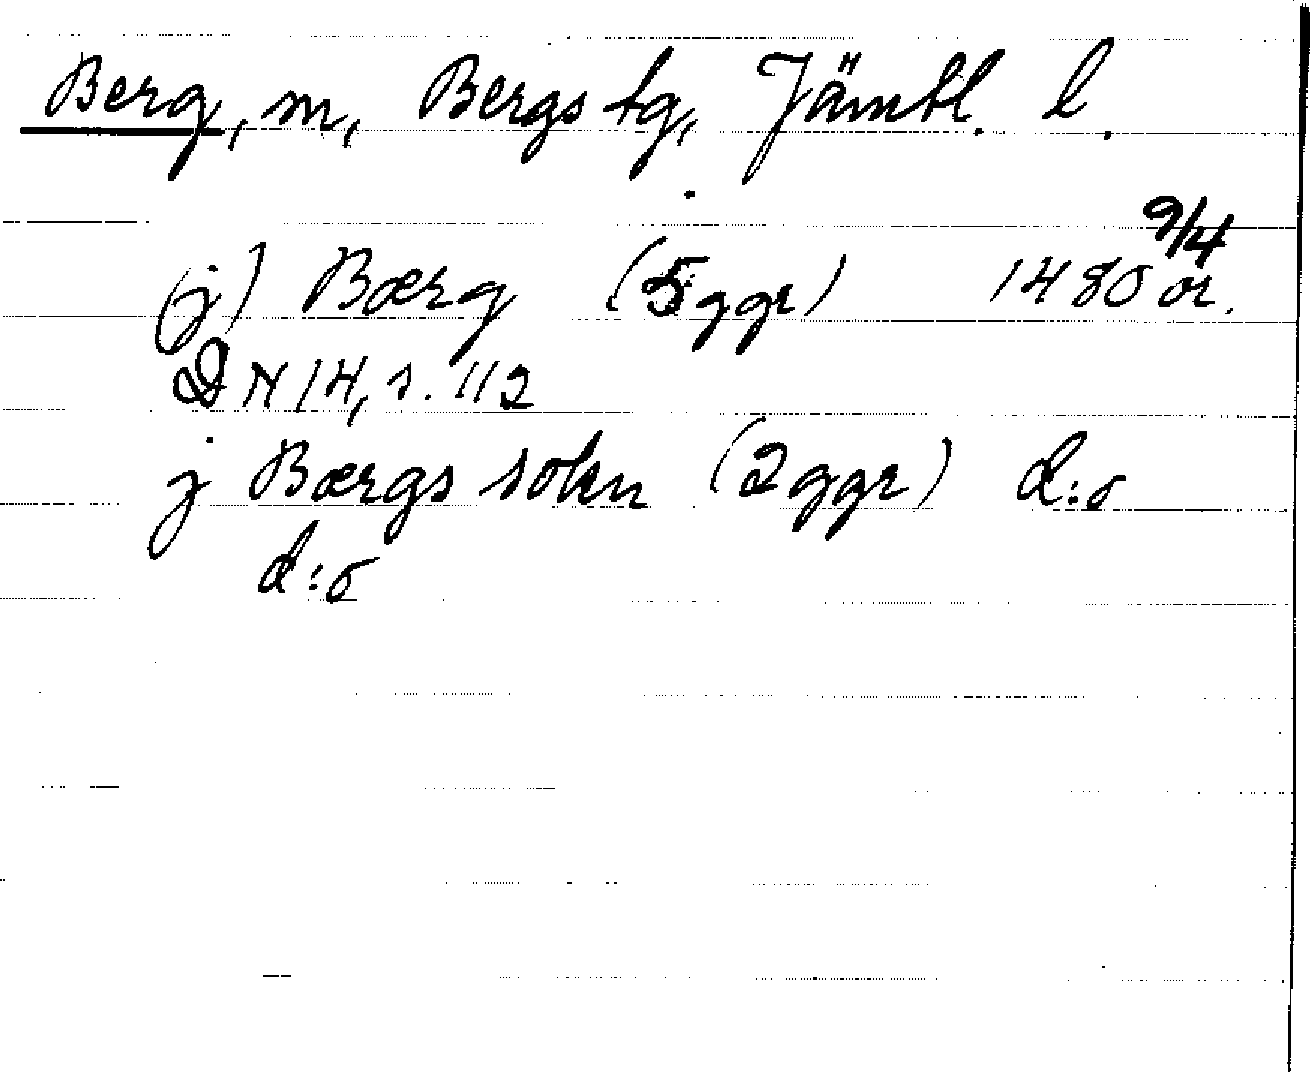 Berg, m, Bergs tg, Jämtl. l.
(j) Bærg (5 ggr) 1480 9/4 or.
DN 14, s. 112
j Bærgs sokn (2 ggr) d:o
d:o